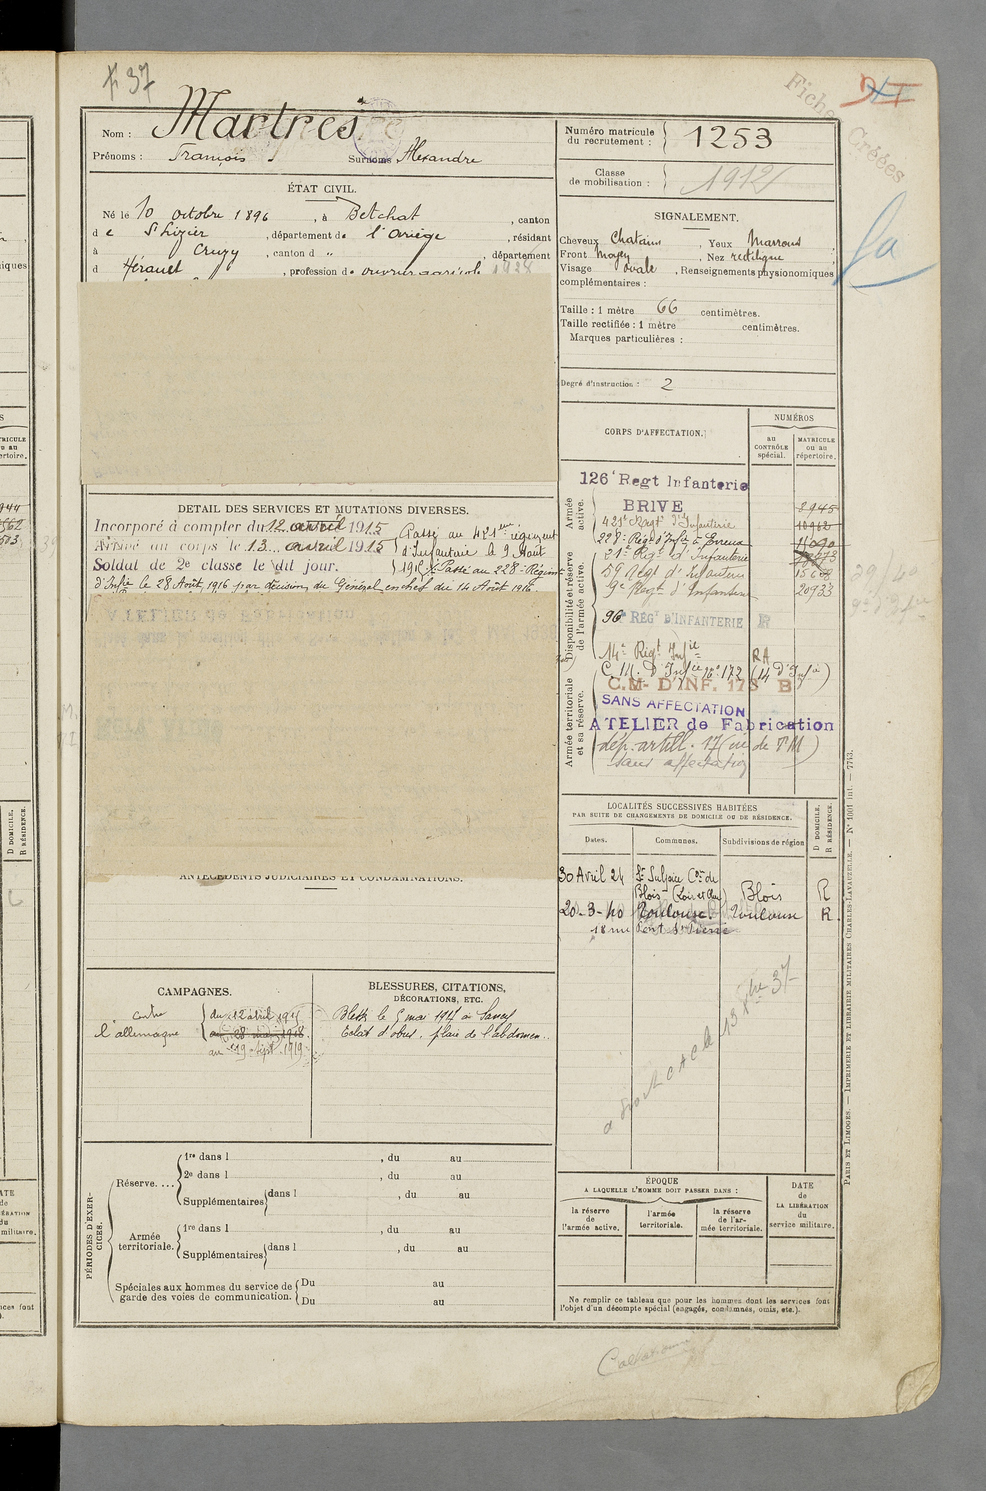 37
Martres
Nom :
Prénoms : François Surnoms Alexandre
ÉTAT CIVIL.
Né le 10 octobre 1896, à Betchat, canton
de St Lizier, département de l'Ariège, résidant
à Cruzy, canton d " , département
d Hérault, profession de ouvrier agricole
1928
DÉTAIL DES SERVICES ET MUTATIONS DIVERSES.
Incorporé à compter du 12 avril 1915
Arrivé au corps le 13 avril 1915
Soldat de 2e classe le dit jour.
Passé au 421ème régiment
d'Infanterie le 9 Août
191 Passé au 228e Régim
d'Infie le 28 Août 1916 par décision du Général en chef du 14 Août 1916.
ANTÉCÉDENTS JUDICIAIRES ET CONDAMNATIONS.
CAMPAGNES.
contre l'allemagne
du 12 avril 1915
au 28 mai 1918
au 19 Sept. 1919
BLESSURES, CITATIONS,
DÉCORATIONS, ETC.
Blessé le 5 mai 1917 à Sancy
Eclat d'obus, plaie de l'abdomen.
PÉRIODES D'EXERCICES.
Réserve....
1re dans l , du au
2e dans l , du au
Supplémentaires dans l , du au
Armée territoriale.
1re dans l , du au
Supplémentaires dans l , du au
Spéciales aux hommes du service de
garde des voies de communication.
Du au
Du au
Numéro matricule
du recrutement : 1253
Classe
de mobilisation : 1912
Fiche Créées
SIGNALEMENT.
Cheveux Chatains, Yeux Marrons
Front moyen, Nez rectiligne
Visage ovale, Renseignements physionomiques
complémentaires :
Taille : 1 mètre 66 centimètres.
Taille rectifiée : 1 mètre centimètres.
Marques particulières :
Degré d'instruction : 2
CORPS D'AFFECTATION.
NUMÉROS
au
CONTRÔLE
spécial.
MATRICULE
ou au
répertoire.
Armée
active.
126e Regt Infanterie
BRIVE
421e Regt d'Infanterie
228e Régt d'Infie à Evreux
Disponibilité et réserve
de l'armée active.
21e Regt d'Infanterie
59 Regt d'Infanterie
9e Regt d'Infanterie 20933
96e REGt D'INFANTERIE R
14e Régt Infie RA
Armée territoriale
et sa réserve.
C.M. d'Infie no 172 (14 d'Infie)
C.M- D'INF. 178 B
SANS AFFECTATION
ATELIER de Fabrication
dép. artill. 17
sans affectation
LOCALITÉS SUCCESSIVES HABITÉES
PAR SUITE DE CHANGEMENTS DE DOMICILE OU DE RÉSIDENCE.
Dates. Communes. Subdivisions de région
D DOMICILE.
R RÉSIDENCE.
30 Avril 24 St Sulpice Con de
Blois (Loir et Cher) Blois R
20-3-40 Toulouse. Toulouse R.
18 rue Pont St Pierre
ÉPOQUE
A LAQUELLE L'HOMME DOIT PASSER DANS :
la réserve
de
l'armée active.
l'armée
territoriale.
la réserve
de l'armée territoriale.
DATE
de
LA LIBÉRATION
du
service militaire.
Ne remplir ce tableau que pour les hommes dont les services font
l'objet d'un décompte spécial (engagés, condamnés, omis, etc.).
PARIS ET LIMOGES. — IMPRIMERIE ET LIBRAIRIE MILITAIRES CHARLES-LAVAUZELLE. — No 1001 int. — 7743.